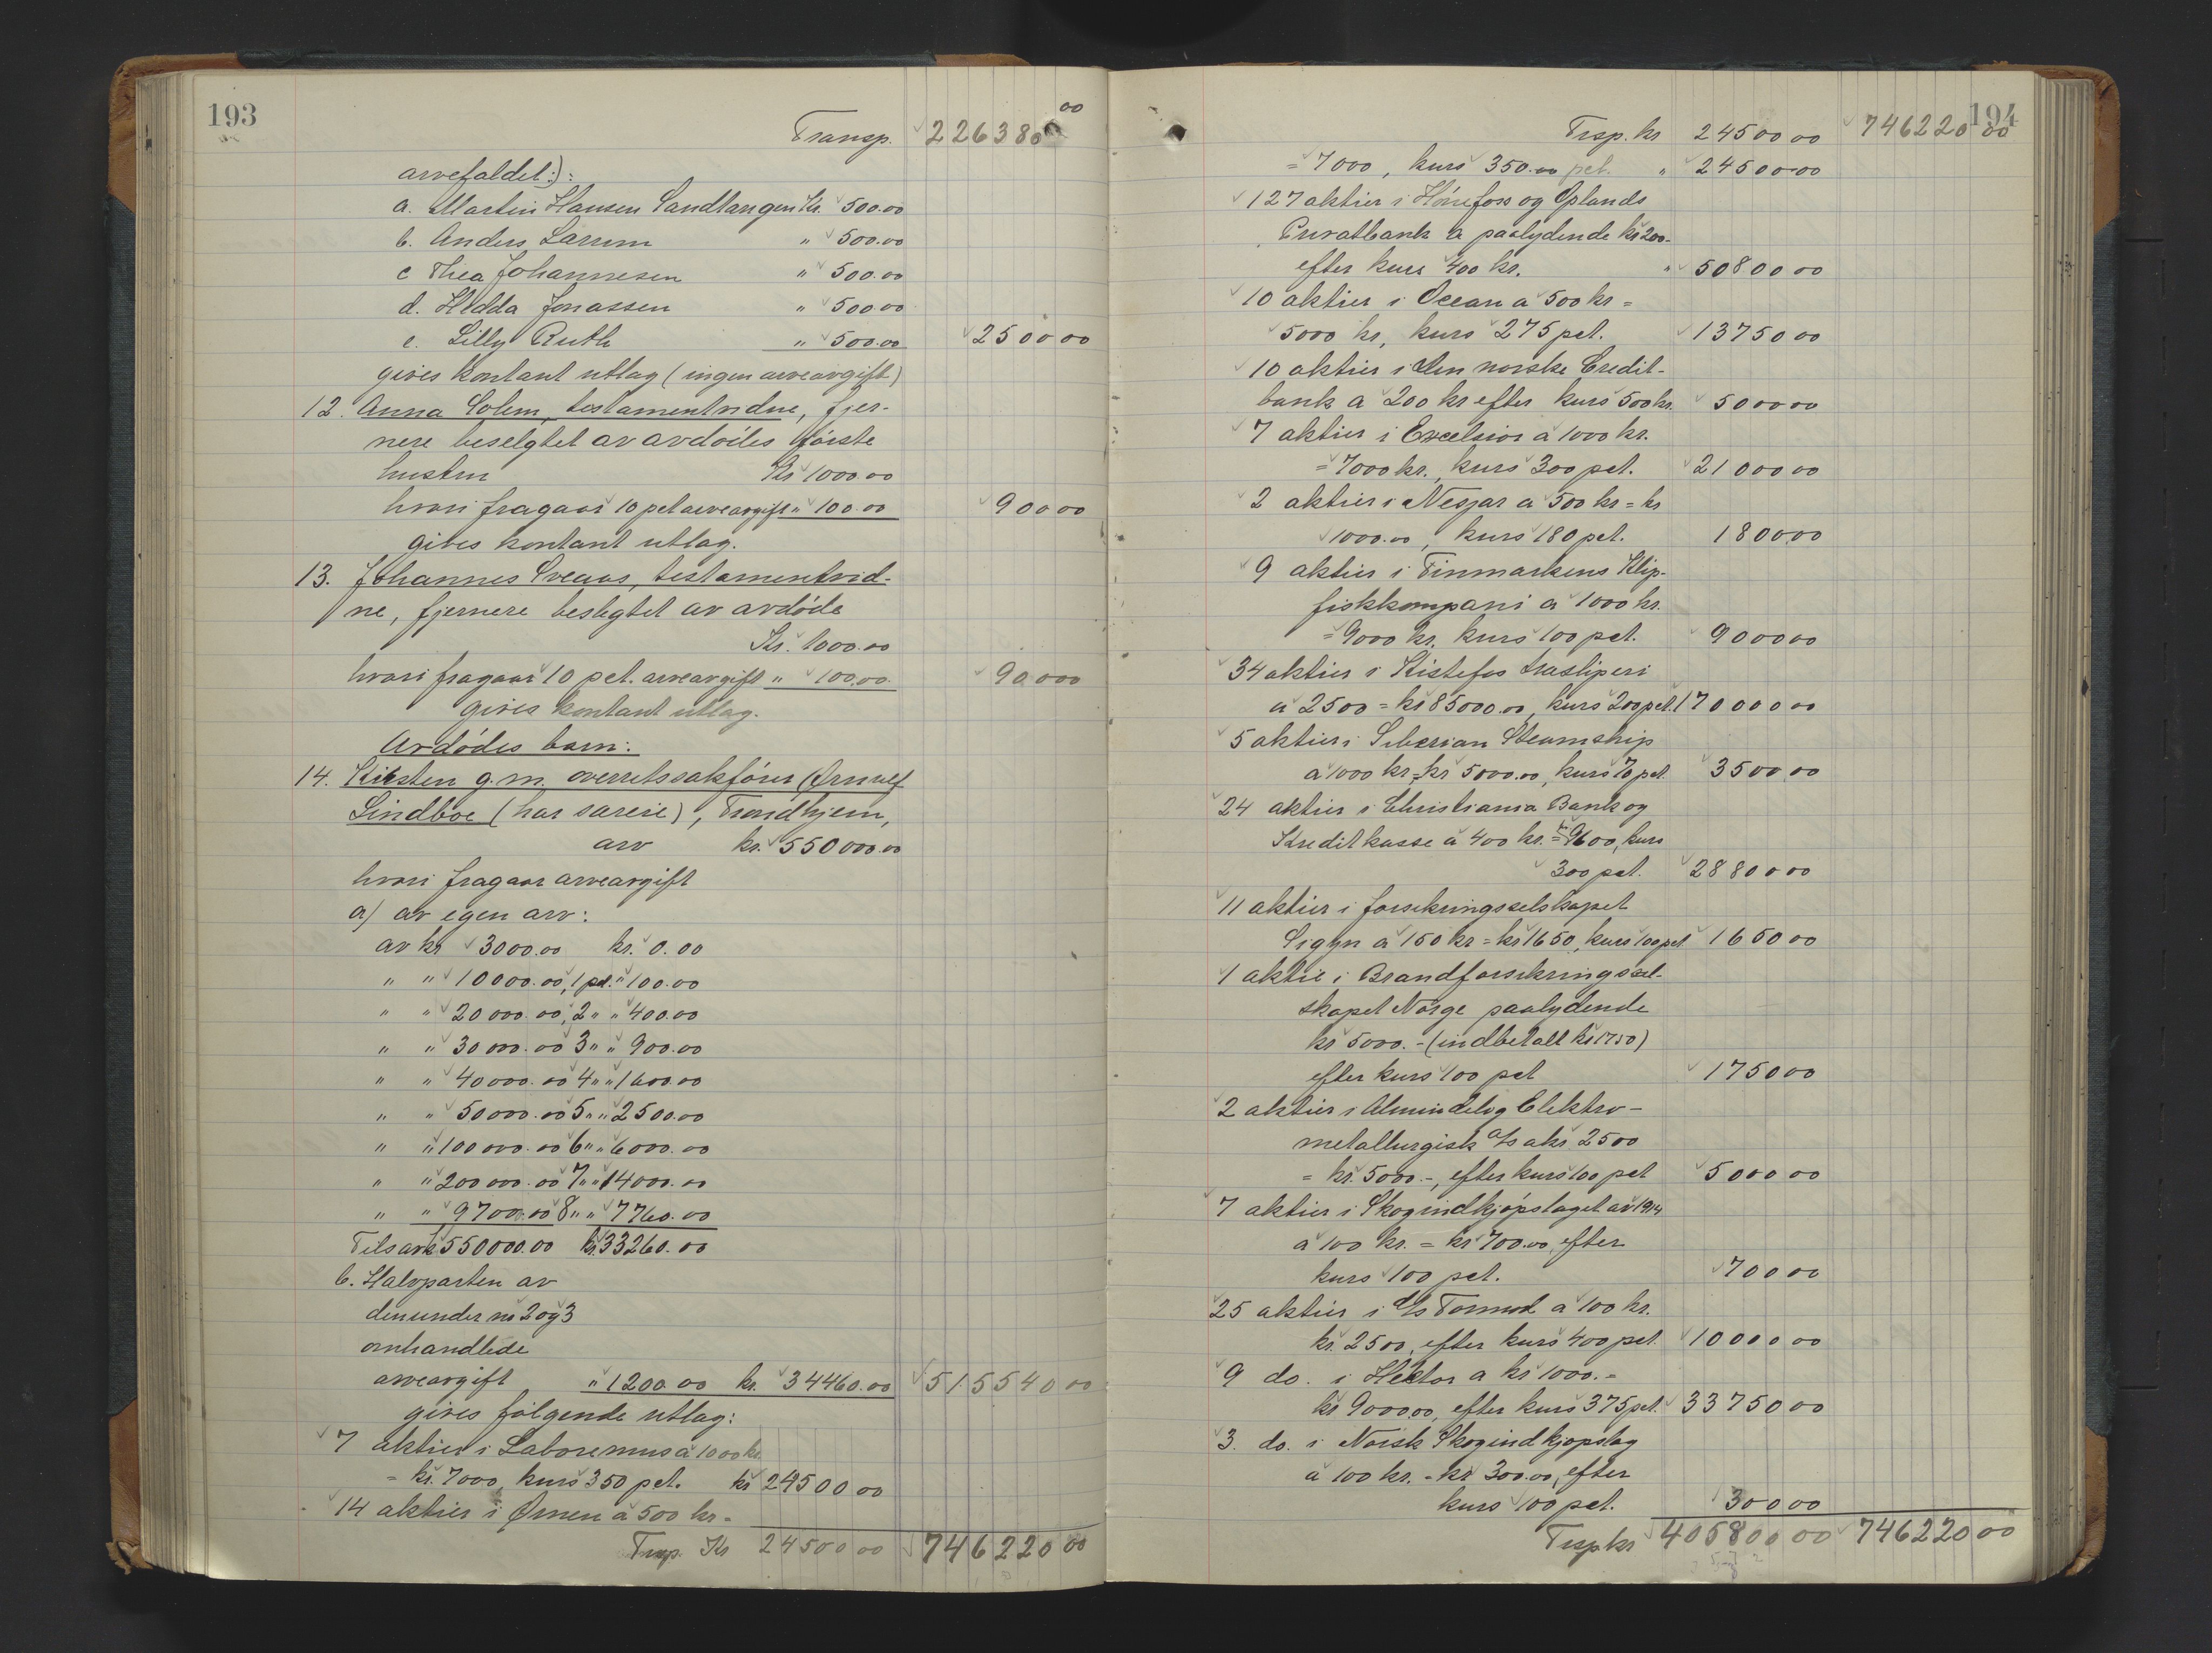 193
Transp. 226380 00
arvefaldet:):
a. Martin Hansen Sandtangen Kr. 500.00
b. Anders Larum " 500.00
c Thea Johannesen " 500.00
d. Hedda Jonassen " 500.00
e. Lilly Ruth " 500.00 2500 00
gives kontant utlag (ingen arveavgift)
12. Anna Solem, testamentvidne, fjer-
nere beselgtet av avdödes första
hustru Kr 1000.00
hvori fragaar 10 pct arveavgift " 100.00 900 00
gives kontant utlag.
13. Johannes Sveaas, testamentvid-
ne, fjernere beslegtet av avdöde
Kr. 1000.00
hvori fragaar 10 pct. arveavgift " 100.00. 900 00
gives kontant utlag.
Avdödes barn:
14. Kirsten g.m. overretssakförer Ørnulf
Lindboe (har særeie), Trondhjem,
arv kr. 550000.00
hvori fragaar arveavgift
a) av egen arv:
av kr 3000.00 kr. 0.00
" " 10000.00, 1 pct. " 100.00
" " 20000.00, 2 " " 400.00
" " 30000.00 3 " " 900.00
" " 40000.00 4 " " 1600.00
" " 50000.00 5 " " 2500.00
" " 100000.00 6 " " 6000.00
" " 200000.00 7 " " 14000.00
" " 97000.00 8 " " 7760.00
Tils av kr 550000.00 kr. 33260.00
b. Halvparten av
den under no 2 og 3
omhandlede
arveavgift " 1200.00 kr. 34460.00 515540 00
gives følgende utlag:
7 aktier i Laboremus a 1000 kr.
= kr. 7000, kurs 350 pct. kr 24500 00
14 aktier i Ørnen a 500 kr. =
Trsp. Kr 24500 00 746220 00
194
Trsp. kr 24500 00 746220 00
= 7000, kurs 350.00 pct. " 24500 00
127 aktier i Hönefoss og Oplands
Privatbank a paalydende kr 200.-
efter kurs 400 kr. " 50800 00
10 aktier i Ocean a 500 kr =
5000 kr, kurs 275 pct. 13750 00
10 aktier i Den norske Credit-
bank a 200 kr efter kurs 500 kr. 5000 00
7 aktier i Excelsior a 1000 kr.
= 7000 kr., kurs 300 pct. 21000 00
2 aktier i Nesjar a 500 kr = kr
1000.00, kurs 180 pct. 1800 00
9 aktier i Finmarkens Klip-
fiskkompani a 1000 kr.
= 9000 kr. kurs 100 pct. 9000 00
34 aktier i Kistefos træsliperi
a 2500 = kr 85000.00, kurs 200 pct. 170000 00
5 aktier i Siberian Steamship
a 1000 kr = kr 5000.00, kurs 70 pct. 3500 00
24 aktier i Christiania Bank og
Kreditkasse a 400 kr. = kr 9600, kurs
300 pct. 28800 00
11 aktier i forsikringsselskapet
Sigyn a 150 kr = kr 1650, kurs 100 pct 1650 00
1 aktie i Brandforsikringssel-
skapet Norge paalydende
kr 5000.- (indbetalt kr 1750)
efter kurs 100 pct 1750 00
2 aktier i Almindelig Elektro-
metallurgisk A/s a kr 2500
= kr. 5000.-, efter kurs 100 pct 5000 00
7 aktier i Skogindkjøpslaget av 1914
a 100 kr. = kr 700.00, efter
kurs 100 pct. 700 00
25 aktier i A/s Tormod a 100 kr.
kr. 2500, efter kurs 400 pct. 10000 00
9 do. i Hektor a kr 1000. =
kr 9000.00, efter kurs 375 pct. 33750 00
3. do. i Norsk Skogindkjøpslag
a 100 kr. = kr 300.00, efter
kurs 100 pct. 300 00
Trsp kr 405800 00 746220 00